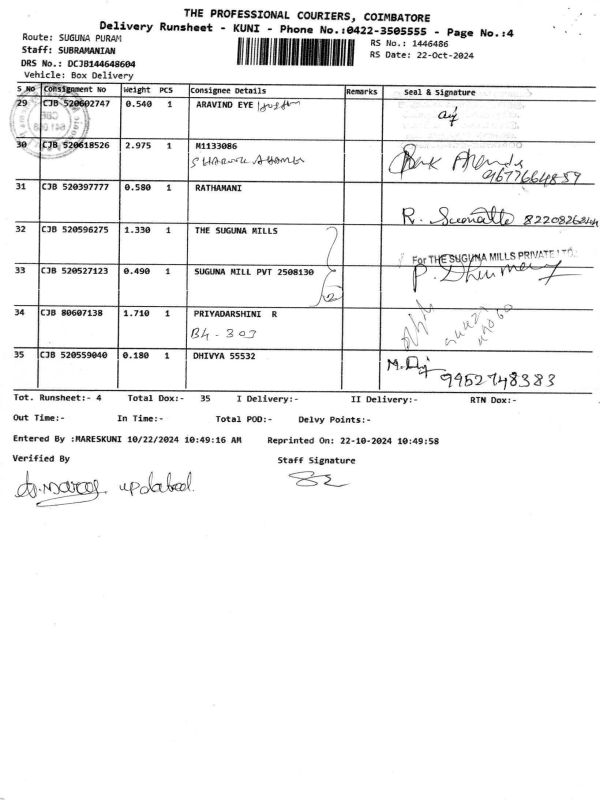 THE PROFESSIONAL COURIERS, COIMBATORE
Delivery Runsheet - KUNI - Phone No.:0422-3505555 - Page No.:4
Route: SUGUNA PURAM
RS No.: 1446486
Staff: SUBRAMANIAN
RS Date: 22-Oct-2024
DRS No.: DCJB144648604
Vehicle: Box Delivery
S No Consignment No Weight PCS Consignee Details Remarks Seal & Signature
29 CJB 520602747 0.540 1 ARAVIND EYE
30 CJB 520618526 2.975 1 M1133086
9677664859
31 CJB 520397777 0.580 1 RATHAMANI
R.
32 CJB 520596275 1.330 1 THE SUGUNA MILLS
For THE SUGUNA MILLS PRIVATE LTD.,
33 CJB 520527123 0.490 1 SUGUNA MILL PVT 2508130
P.
34 CJB 80607138 1.710 1 PRIYADARSHINI R
B4 - 303
35 CJB 520559040 0.180 1 DHIVYA 55532
9952748383
Tot. Runsheet:- 4 Total Dox:- 35 I Delivery:- II Delivery:- RTN Dox:-
Out Time:- In Time:- Total POD:- Delvy Points:-
Entered By :MARESKUNI 10/22/2024 10:49:16 AM Reprinted On: 22-10-2024 10:49:58
Verified By Staff Signature
updated.